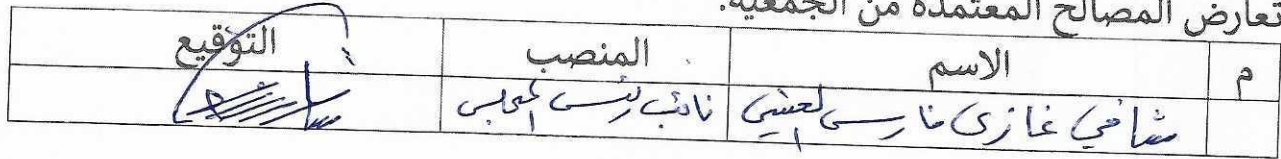 تعارض المصالح المعتمدة من الجمعية.
م الاسم المنصب التوقيع
شافي غازي فارس العتيبي نائب رئيس المجلس